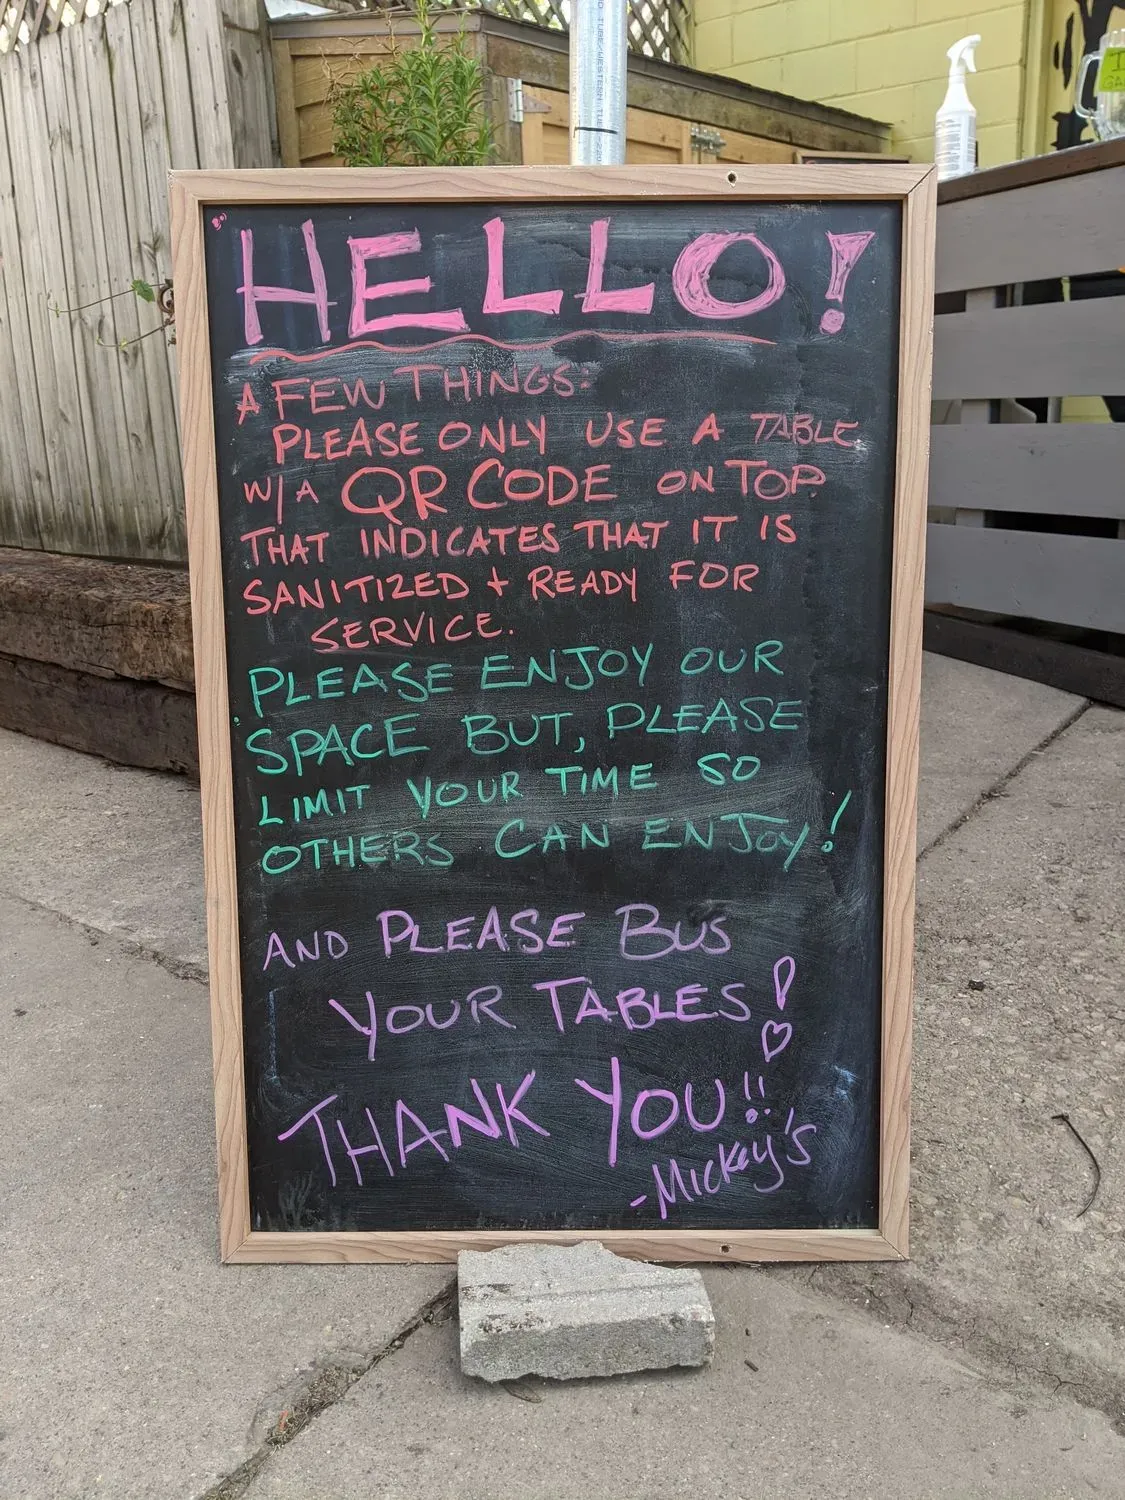 HELLO!
A FEW THINGS:
PLEASE ONLY USE A TABLE
W/A QR CODE ON TOP.
THAT INDICATES THAT IT IS
SANITIZED + READY FOR
SERVICE.
PLEASE ENJOY OUR
SPACE BUT, PLEASE
LIMIT YOUR TIME SO
OTHERS CAN ENJOY!
AND PLEASE BUS
YOUR TABLES!
THANK YOU!!
-MICKEY'S